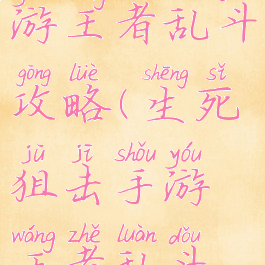 游王者乱斗
gōng lüè shēng sǐ
攻略(生死
jū jī shǒu yóu
狙击手游
wáng zhě luàn dǒu
王者乱斗